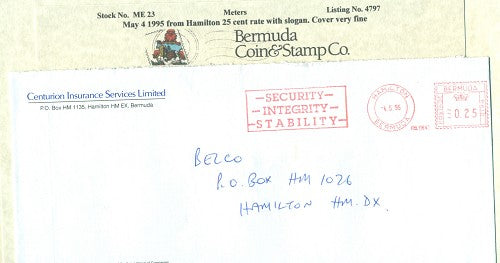 Stock No. ME 23 Meters Listing No. 4797
May 4 1995 from Hamilton 25 cent rate with slogan. Cover very fine
Bermuda
Coin & Stamp Co.
Centurion Insurance Services Limited
P.O. Box HM 1135, Hamilton HM EX, Bermuda
SECURITY
INTEGRITY
STABILITY
HAMILTON
BERMUDA
BERMUDA
0.25
BELCO
P.O. BOX HM 1026
HAMILTON HM.DX.